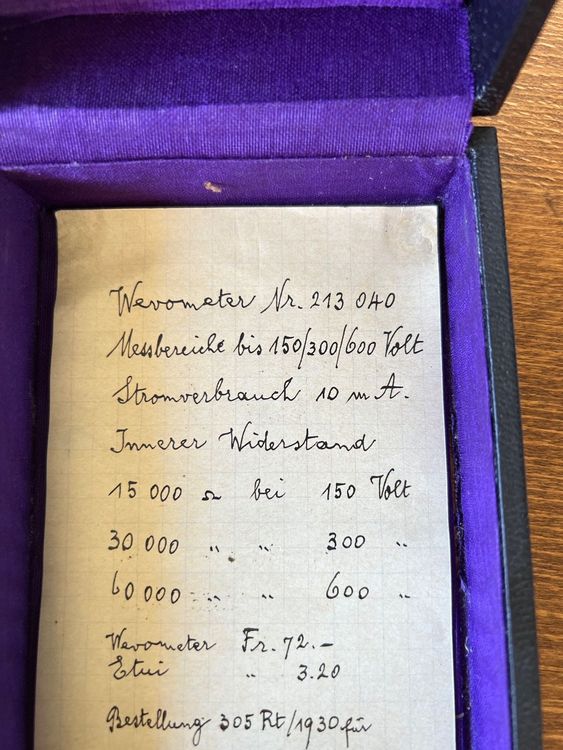 Wevometer Nr. 213 040
Messbereiche bis 150/300/600 Volt
Stromverbrauch 10 m A.
Innerer Widerstand
15 000 Ω bei 150 Volt
30 000 " " 300 "
60 000 " " 600 "
Wevometer Fr. 72.-
Etui " 3.20
Bestellung 305 Rt/1930 für